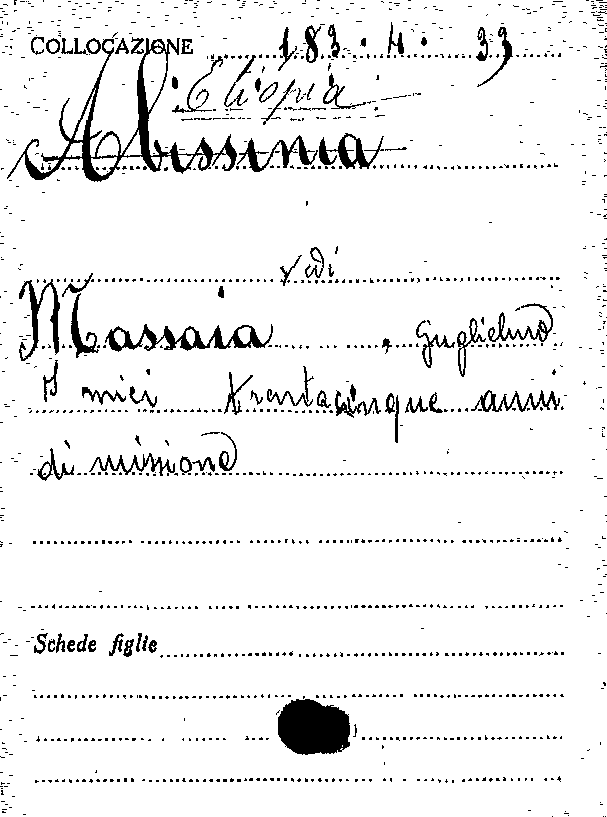 COLLOCAZIONE 183.4.33
Etiopia
Abissinia
vedi
Massaia, Guglielmo
I miei trentacinque anni
di missione
Schede figlie